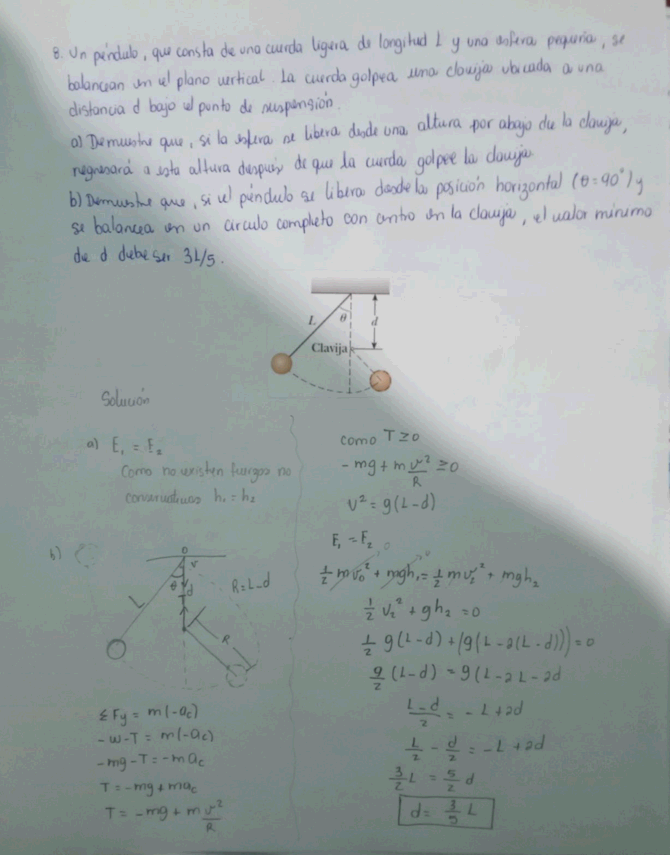 8. Un péndulo, que consta de una cuerda ligera de longitud L y una esfera pequeña, se
balancea en el plano vertical. La cuerda golpea una clavija ubicada a una
distancia d bajo el punto de suspensión.
a) Demuestre que, si la esfera se libera desde una altura por abajo de la clavija,
regresará a esta altura después de que la cuerda golpee la clavija
b) Demuestre que, si el péndulo se libera desde la posición horizontal (θ=90°) y
se balancea en un circulo completo con centro en la clavija, el valor mínimo
de d debe ser 3L/5.
L
θ
d
Clavija
Solución
a) E₁ = E₂
Como no existen fuerzas no
conservativas h₁ = h₂
b)
0
v
θ
d
L
T
R=L-d
R
ΣFy = m(-ac)
-w-T = m(-ac)
-mg-T = -mac
T = -mg+mac
T = -mg + m v²/R
como T≥0
-mg + m v²/R ≥0
v² = g(L-d)
E₁ = E₂
½ m v₀² + mgh₁ = ½ m v₂² + mgh₂
½ v₂² + gh₂ = 0
½ g(L-d) + (g(L-2(L-d))) = 0
g/2 (L-d) = g(L-2L-2d
L-d/2 = -L+2d
L/2 - d/2 = -L+2d
3/2 L = 5/2 d
d = 3/5 L